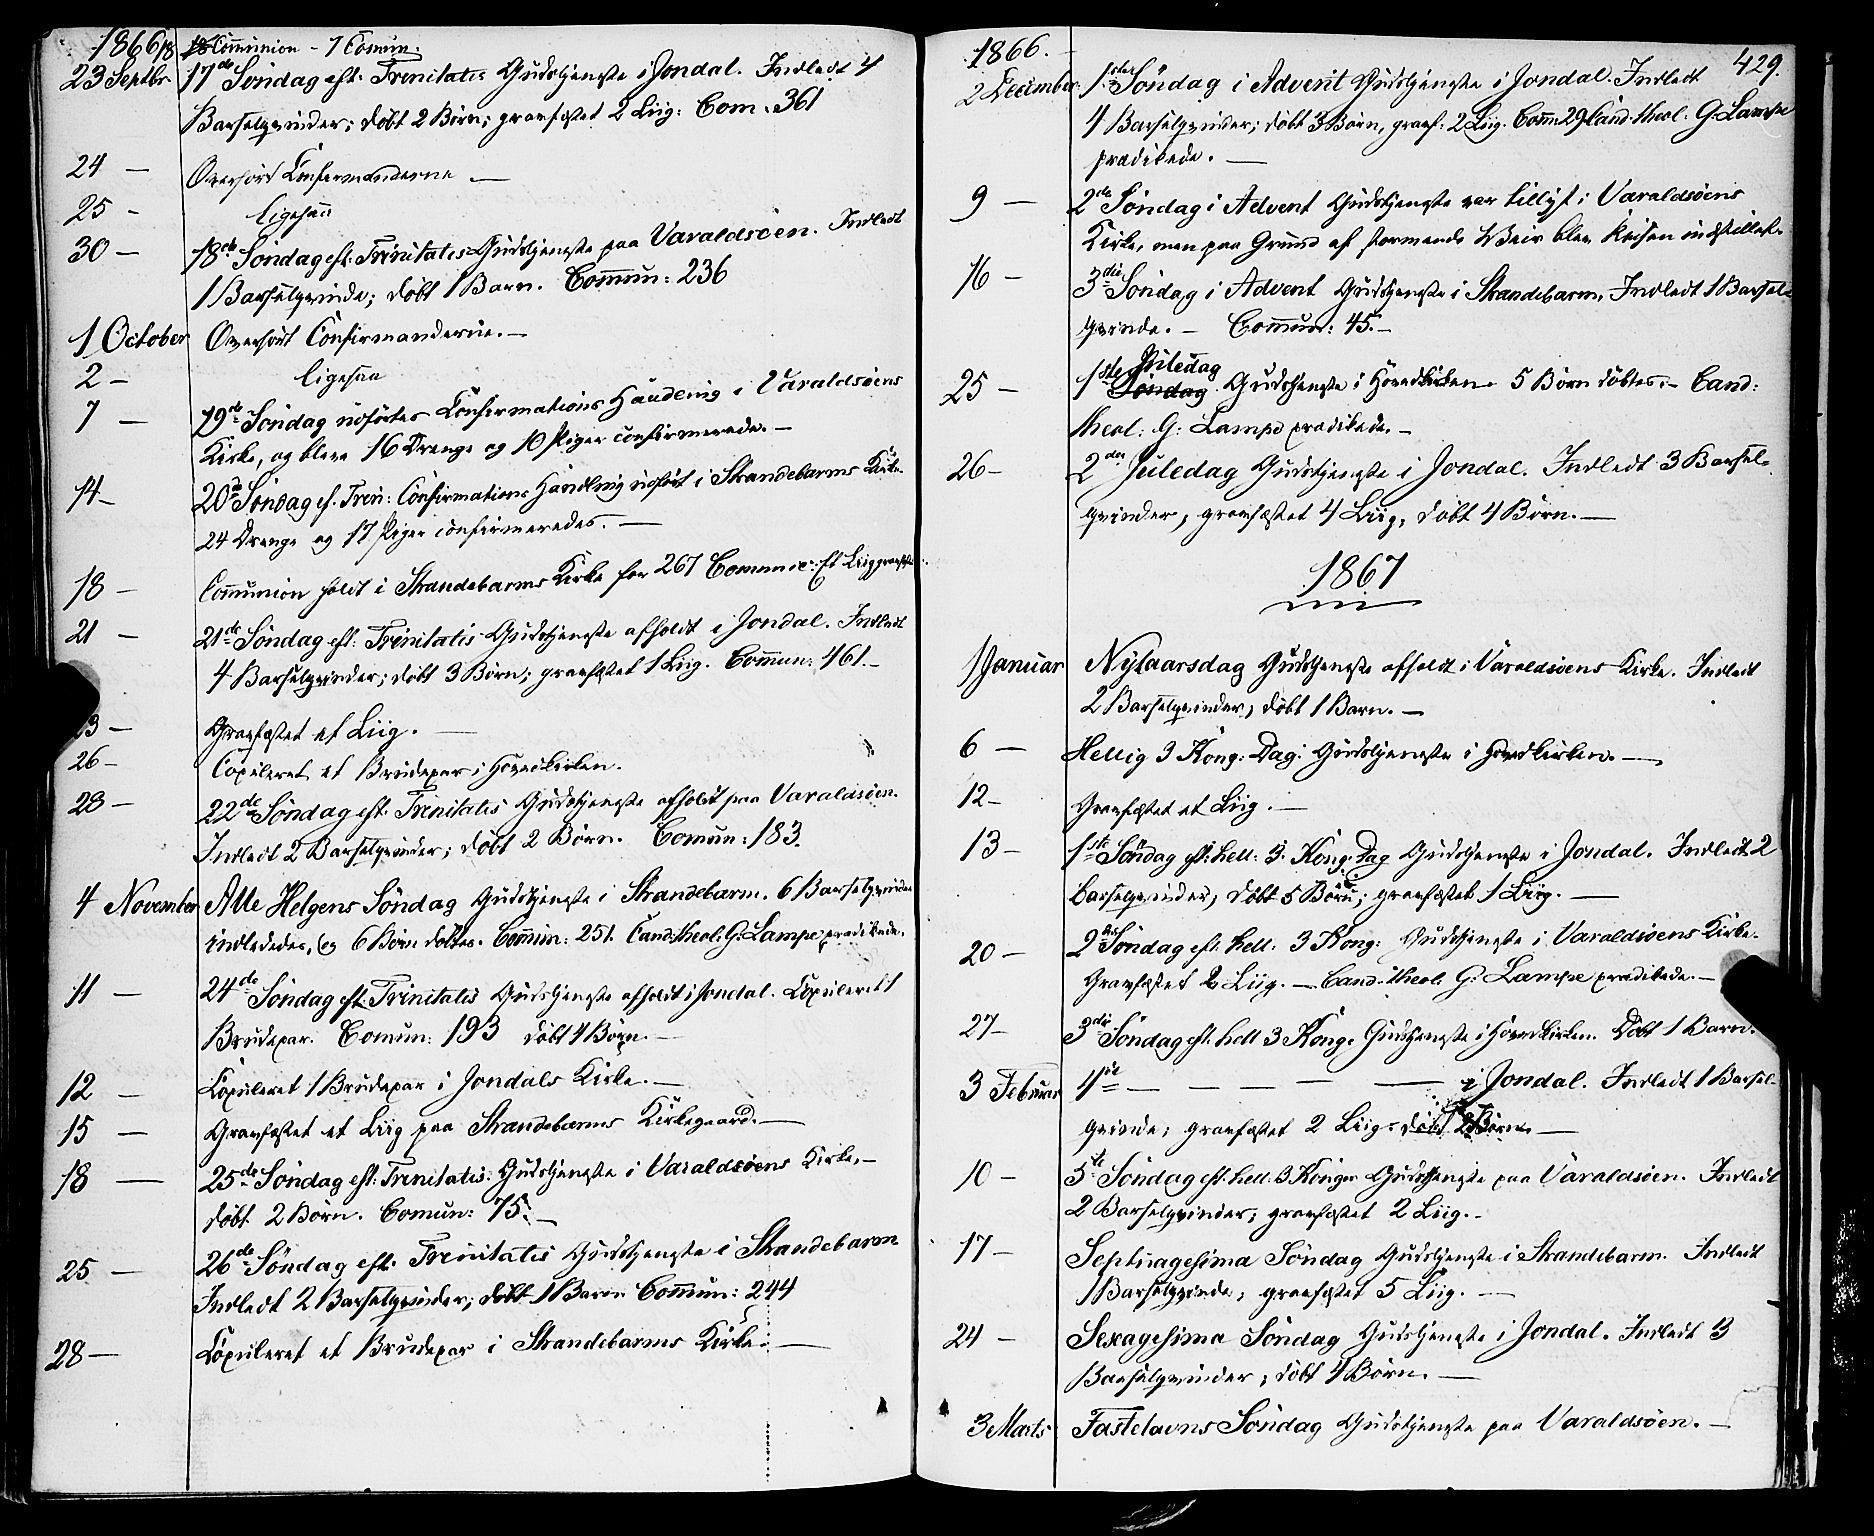 1866 18 Communion - 1 Comun.
23 Septbr. 17de Søndag eft. Trinitatis Gudstjeneste i Jondal. Indledt 4
Barselqvinder; døbt 2 Børn; gravfæstet 2 Liig: Com. 361
24 — Overhørt Confirmanderne —
25 - ligesaa
30 — 18de Søndag eft. Trinitatis Gudstjeneste paa Varaldsøen. Indledt
1 Barselqvinde; døbt 1 Barn. Commun: 236
1 October Overhørt Confirmanderne. —
2 — ligesaa
7 — 19de Søndag udførtes Confirmations Handling i Varaldsøens
Kirke, og bleve 16 Drenge og 10 Piger confirmerede. —
14 - 20de Søndag ef. Trin: Confirmations Handling udført i Strandebarms Kirke
24 Drenge og 17 Piger confirmeredes. —
18 — Communion holdt i Strandebarms Kirke for 267 Commun: Et Liig gravfæst:
21 — 21de Søndag eft: Trinitatis Gudstjeneste afholdt i Jondal. Indledt
4 Barselqvinder; døbt 3 Børn; gravfæstet 1 Liig. Commun: 461. —
23 — Gravfæstet et Liig. —
26 - Copuleret et Brudepar i Hovedkirken.
28 — 22de Søndag eft. Trinitatis Gudstjeneste afholdt paa Varaldsøen.
Indledt 2 Barselqvinder; døbt 2 Børn. Comun: 183.
4 November Alle Helgens Søndag Gudstjeneste i Strandebarm. 6 Barselqvinder
indlededes, og 6 Børn døbtes. Commun: 251. Cand: theol: G. Lampe prædikede.
11 — 24de Søndag eft Trinitatis Gudstjeneste afholdt i Jondal. Copuleret 1
Brudepar. Comun: 193 døbt 4 Børn. —
12 — Copuleret 1 Brudepar i Jondals Kirke. —
15 — Gravfæstet et Liig paa Strandebarms Kirkegaard. —
18 — 25de Søndag eft: Trinitatis: Gudstjeneste i Varaldsøens Kirke. —
døbt 2 Børn. Comun: 75. —
25 — 26de Søndag eft. Trinitatis Gudstjeneste i Strandebarm
Indledt 2 Barselqvinder; døbt 1 Barn Commun: 244
28 — Copuleret et Brudepar i Strandebarms Kirke. —
1866. 429.
2 December 1ste Søndag i Advent Gudstjeneste i Jondal. Indledt
4 Barselqvinder; døbt 3 Børn, gravf: 2 Liig. Comm: 29 Cand. theol. G. Lampe
prædikede. —
9 — 2de Søndag i Advent Gudstjeneste var tillyst i Varaldsøens
Kirke, men paa Grund af stormende Veir blev Reisen indstillet.
16 — 3die Søndag i Advent Gudstjeneste i Strandebarm, Indledt 1 Barsel-
qvinde. — Commun: 45. —
25 — 1ste Søndag Juledag Gudstjeneste i Hovedkirken 5 Børn døbtes. — Cand:
theol: G: Lampe prædikede. —
26 - 2den Juledag Gudstjeneste i Jondal. Indledt 3 Barsel-
qvinder, gravfæstet 4 Liig, døbt 4 Børn. —
1867
1 Januar Nytaarsdag Gudstjeneste afholdt i Varaldsøens Kirke. Indledt
2 Barselqvinder, døbt 1 Barn. —
6 — Hellig 3 Kong: Dag: Gudstjeneste i Hovedkirken. —
12 - Gravfæstet et Liig. —
13 - 1ste Søndag eft: hell: 3. Kong: Dag Gudstjeneste i Jondal. Indledt 2
barselqvinder, døbt 5 Børn; gravfæstet 1 Liig. —
20 — 2de Søndag eft. hell: 3 Kong: Gudstjeneste i Varaldsøens Kirke.
Gravfæstet 2 Liig. — Cand: theol: G: Lampe prædikede. —
27 - 3die Søndag eft. hell 3 Kong. Gudstjeneste i Hovedkirken. Døbt 1 Barn.
3 Februar 4de — — — — i Jondal. Indledt 1 Barsel-
qvinde; gravfæstet 2 Liig. døbt 2 Børn. —
10 - 5te Søndag eft. hell: 3 Konger Gudstjeneste paa Varaldsøen. Indledt
2 Barselqvinder, gravfæstet 2 Liig. —
17 - Septuagesima Søndag Gudstjeneste i Strandebarm. Indledt
1 Barselqvinde; gravfæstet 5 Liig. —
24 — Sexagesima Søndag Gudstjeneste i Jondal. Indledt 3
Barselqvinder; døbt 4 Børn. —
3 Marts Fastelavns Søndag Gudstjeneste paa Varaldsøen. —